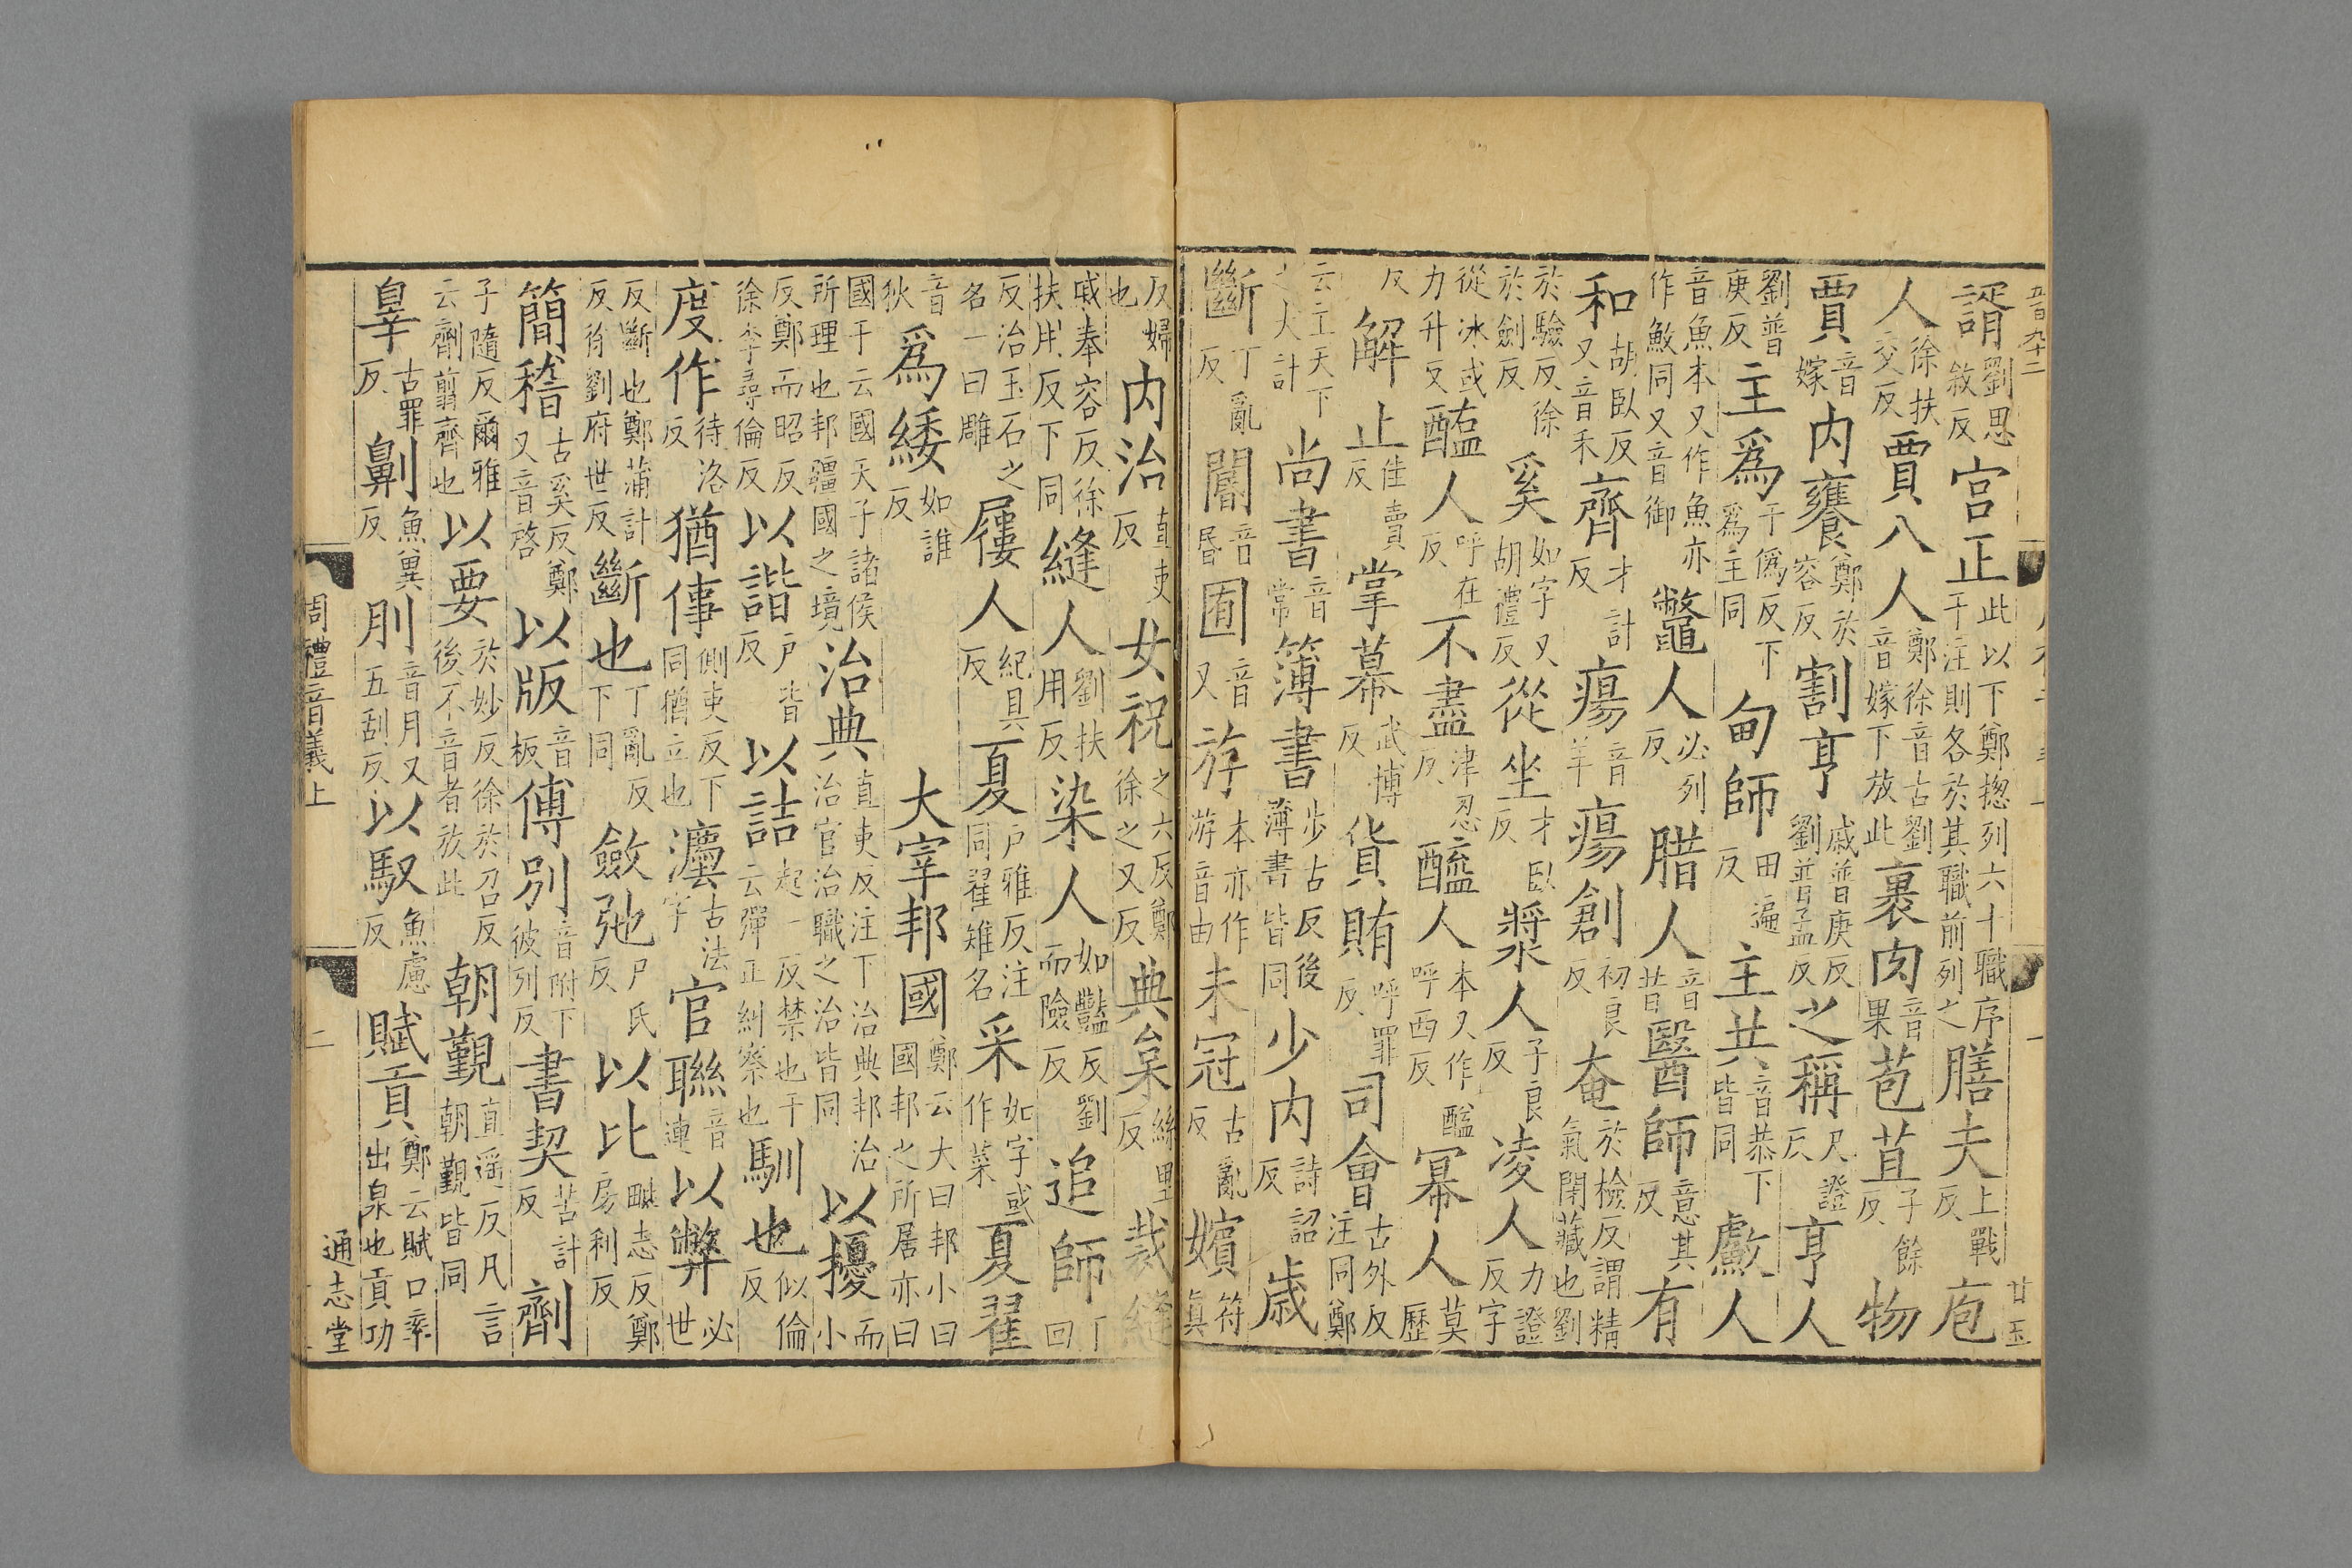 五百九十二 廿五
諝劉思敘反宮正此以下鄭揔列六十職序干注則各於其職前列之膳夫上戰反庖
人徐扶交反賈八人鄭徐音古劉音嫁下放此裹肉音果苞苴子餘反物
賈音嫁内饔鄭於容反割亨戚普庚反劉普孟反之稱尺證反亨人
劉普庚反主爲于僞反下爲主同甸師田遍反主共音恭下皆同䱷人
音魚本又作魚亦作䱷同又音御鼈人必列反腊人音昔醫師意其反有
和胡臥反又音禾齊才計反瘍音羊瘍創初良反奄於檢反謂精氣閉藏也劉
於驗反徐於劍反奚如字又胡禮反從坐才臥反漿人子良反凌人力證反字
從冰或力升反醢人呼在反不盡津忍反醯人本又作醯呼西反冪人莫歷
反解止佳賣反掌幕武博反貨賄呼罪反司會古外反注同鄭
云主天下之大計尚書音常簿書步古反後簿書皆同少内詩詔反歳
斷丁亂反閽音昏囿音又斿本亦作游音由未冠古亂反嬪符眞
反婦也内治直吏反女祝之六反鄭徐之又反典枲絲里反裁縫
戚奉容反徐扶用反下同縫人劉扶用反染人如豔反劉而險反追師丁回
反治玉石之名一曰雕屨人紀具反夏戶雅反注同翟雉名采如字或作菜夏翟
音狄爲緌如誰反 大宰邦國鄭云大曰邦小曰國邦之所居亦曰
國干云國天子諸侯所理也邦疆國之境治典直吏反注下治典邦治治官治職之治皆同以擾而小
反鄭而昭反徐李尋倫反以諧戶皆反以詰起一反禁也干云彈正糾察也馴也似倫反
度作待洛反猶倳側吏反下同猶立也灋古法字官聯音連以弊必世
反斷也鄭蒲計反徐劉府世反斷也丁亂反下同斂弛尸氏反以比毗志反鄭房利反
簡稽古奚反鄭又音啓以版音板傅別音附下彼列反書契苦計反劑
子隨反爾雅云劑翦齊也以要於妙反徐於召反後不音者放此朝覲直遥反凡言朝覲皆同
辠古罪反劓魚異反刖音月又五刮反以馭魚慮反賦貢鄭云賦口率出泉也貢功
周禮音義上 二 通志堂